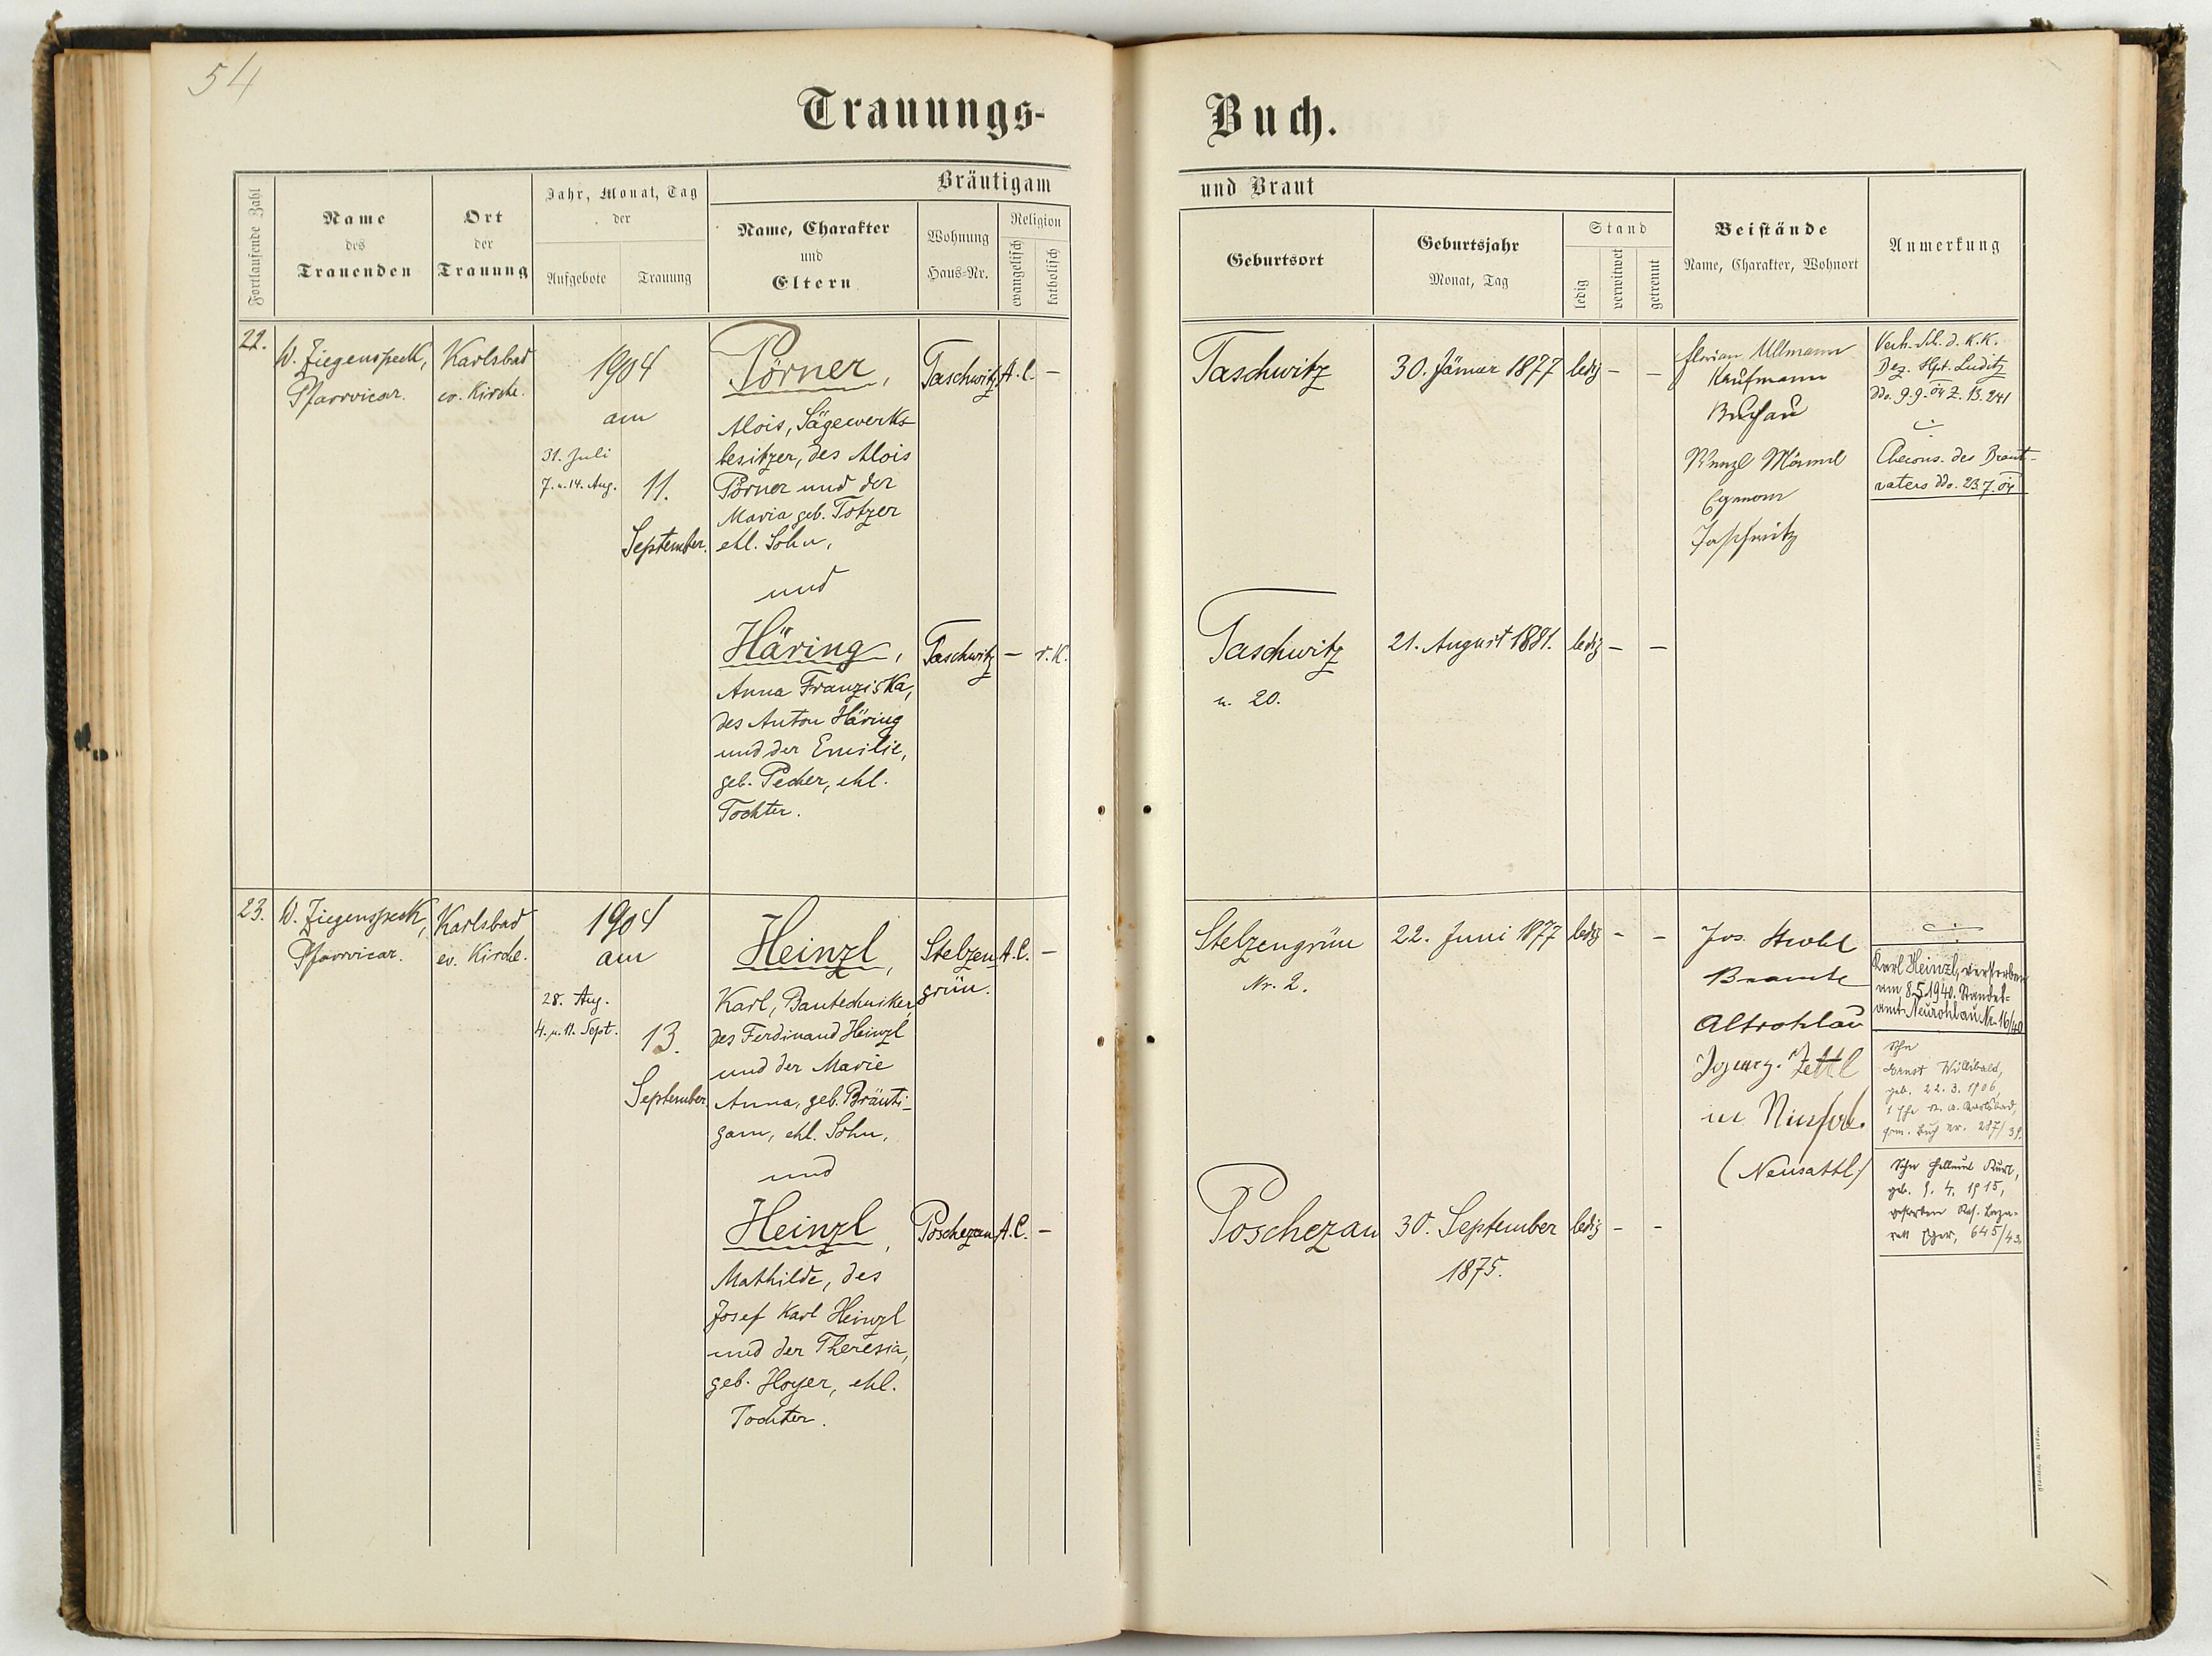 54
Trauungs-
Buch.
Fortlaufende Zahl
Name
des
Trauenden
Ort
der
Trauung
Jahr, Monat, Tag
der
Aufgebote
Trauung
Bräutigam
Name, Charakter
und
Eltern
Wohnung
Haus-Nr.
Religion
evangelisch
katholisch
und Braut
Geburtsort
Geburtsjahr
Monat, Tag
Stand
ledig
verwitwet
getrennt
Beistände
Name, Charakter, Wohnort
Anmerkung
22.
W. Ziegenspeck,
Pfarrvicar.
Karlsbad
ev. Kirche.
1904
am
31. Juli
7. u. 14. Aug.
11.
September.
Pörner,
Alois, Sägewerks-
besitzer, des Alois
Pörner und der
Maria geb. Totzer
ehl. Sohn,
und
Häring,
Anna Franziska,
des Anton Häring
und der Emilie,
geb. Pecher, ehl.
Tochter.
Taschwitz
A.C.
-
Taschwitz
-
r.K.
Taschwitz
30. Jänner 1877
ledig
-
-
Taschwitz
u. 20.
21. August 1881.
ledig
-
-
Florian Ullmann
Kaufmann
Buchau
Wenzl
Taschwitz
Verh. d. K.K.
Bez. Hpt. Luditz
ddo. 9.9.04 Z. 13.241
des Braut-
vaters ddo. 23.7.04
23.
W. Ziegenspeck,
Pfarrvicar.
Karlsbad
ev. Kirche.
1904
am
28. Aug.
4. u. 11. Sept.
13.
September.
Heinzl,
Karl, Bautechniker,
des Ferdinand Heinzl
und der Marie
Anna, geb. Bräuti-
gam, ehl. Sohn,
und
Heinzl,
Mathilde, des
Josef Karl Heinzl
und der Theresia,
geb. Hoyer, ehl.
Tochter.
Stelzen-
grün.
A.C.
-
Poschezau
A.C.
-
Stelzengrün
Nr. 2.
22. Juni 1877
ledig
-
-
Poschezau
30. September
1875.
ledig
-
-
Jos.
Beamte
Altrohlau
Zettl
in
(Neusattl)
Karl Heinzl, verstorben
am 8.5.1940. Standes-
amt Neurohlau Nr. 16/40
Sohn
Ernst Willibald,
geb. 22.3.1906,
Karlsbad,
Buch Nr. 287/39.
Sohn Hellmut Kurt,
geb. 9. 4. 1915,
gestorben Res. Laza-
rett Eger, 645/43